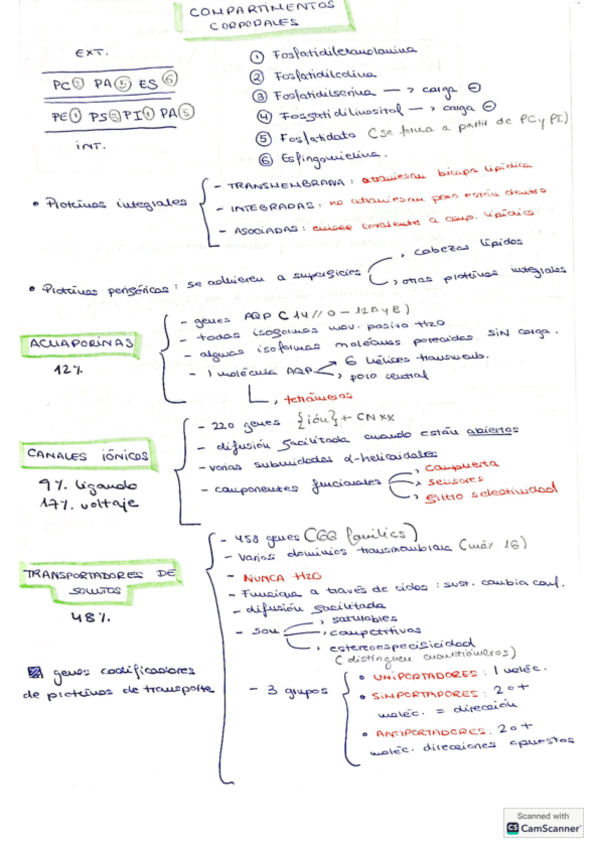 COMPARTIMENTOS
CORPORALES
EXT.
PC② PA⑤ ES⑥
PE① PS③ PI④ PA⑤
INT.
① Fosfatidiletanolamina
② Fosfatidilcolina
③ Fosfatidilserina —> carga ⊖
④ Fosfatidilinositol —> carga ⊖
⑤ Fosfatidato (se forma a partir de PC y PI)
⑥ Esfingomielina.
• Proteínas integrales
- TRANSMEMBRANA: atraviesan bicapa lipídica
- INTEGRADAS: no atraviesan pero están dentro
- ASOCIADAS: enlace covalente a comp. lipídico
• Proteínas periféricas: se adhieren a superficies
, cabezas lípidos
, otras proteínas integrales
ACUAPORINAS
12%
- genes AQP (14 // 0-12A y B)
- todas isoformas mov. pasivo H2O
- algunas isoformas moléculas parecidas SIN carga.
- 1 molécula AQP
6 hélices transmemb.
, poro central
, tetrámeros
CANALES IÓNICOS
9% ligando
17% voltaje
- 220 genes {ión} + CNXX
- difusión facilitada cuando están abiertos
- varias subunidades α-helicoidales
- componentes funcionales
, compuerta
, sensores
, filtro selectividad
TRANSPORTADORES DE
SOLUTOS
48%
- 458 genes (66 familias)
- varios dominios transmembrana (máx 16)
- NUNCA H2O
- Funciona a través de ciclos: sust. cambia conf.
- difusión facilitada
- son
, saturables
, competitivas
, estereoespecificidad
(distinguen enantiómeros)
genes codificadores
de proteínas de transporte
- 3 grupos
• UNIPORTADORES: 1 moléc.
• SIMPORTADORES: 2 o +
moléc. = dirección
• ANTIPORTADORES: 2 o +
moléc. direcciones opuestas
Scanned with
CS CamScanner